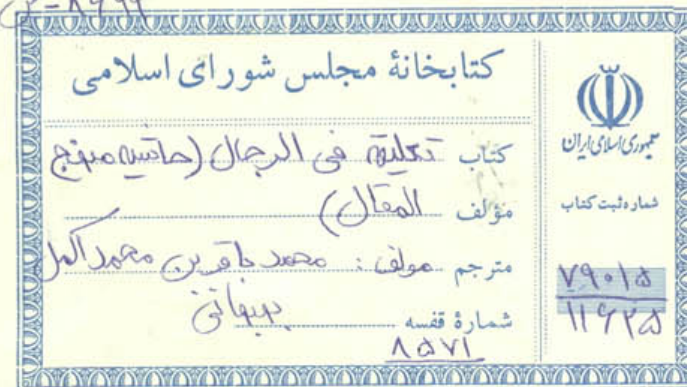 کتابخانهٔ مجلس شورای اسلامی
کتاب تعلیقه فی الرجال (حاشیه منهج
مؤلف المقال)
مترجم مولف: محمد باقر بن محمد اکمل
بهبهانی
شمارهٔ قفسه
۸۵۷۱
جمهوری اسلامی ایران
شماره ثبت کتاب
۷۹۰۱۵
۱۱۶۲۵